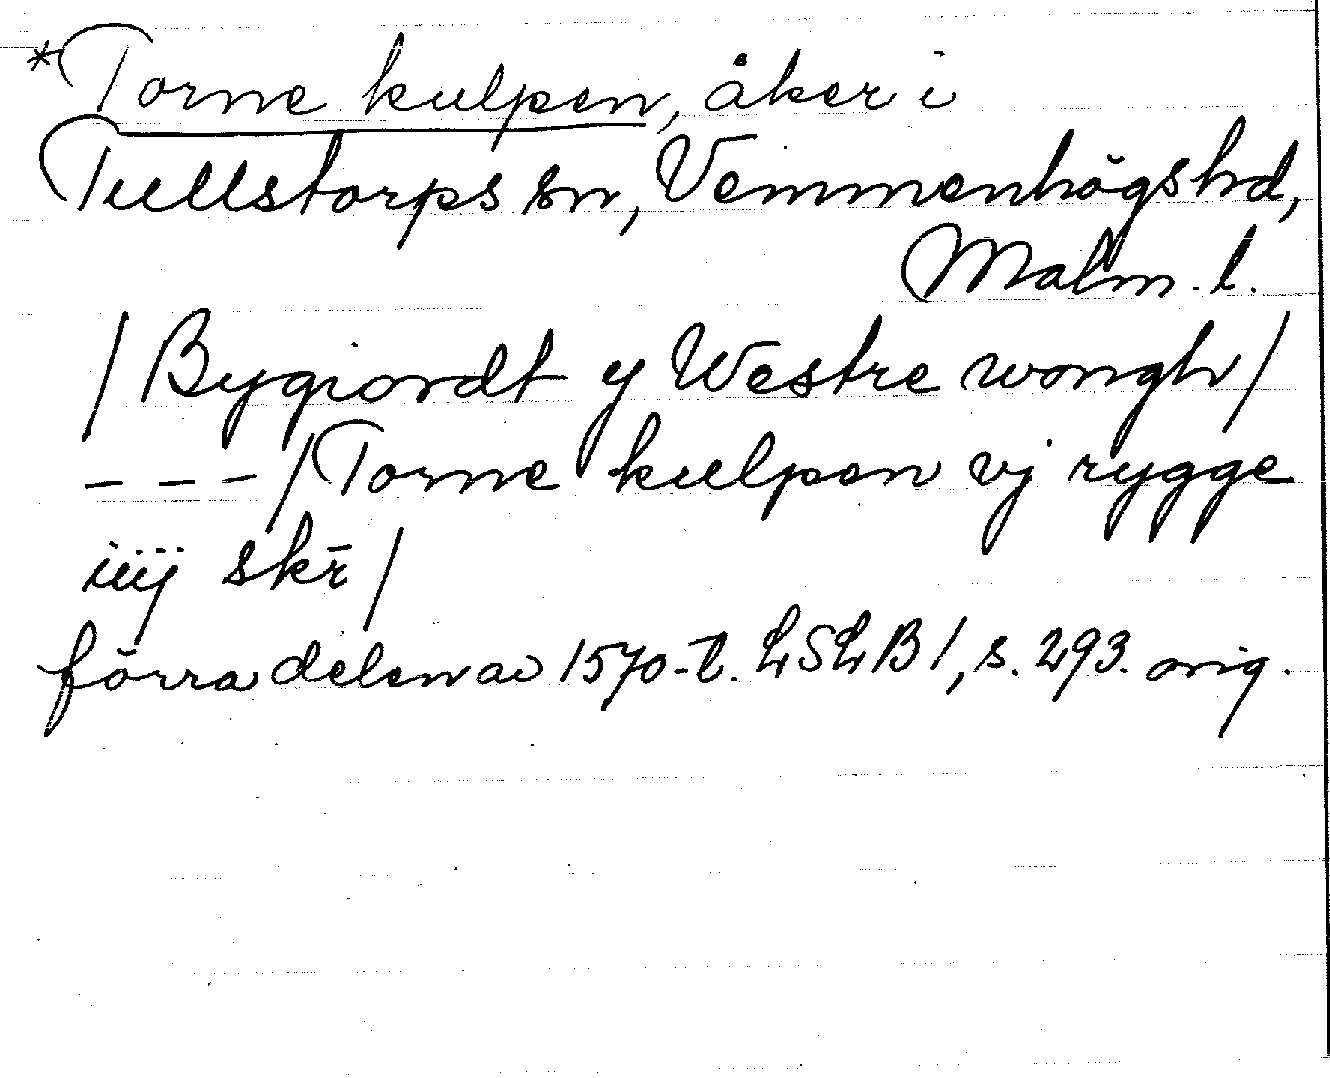 *Torne kulpen, åker i
Tullstorps sn, Vemmenhögs hd,
Malm. l.
/Bygiordt y Westre wongh/
– – – /Torne kulpen vj rygge
iiij skr̄/
förra delen av 1570-t. LSLB 1, s. 293. orig.